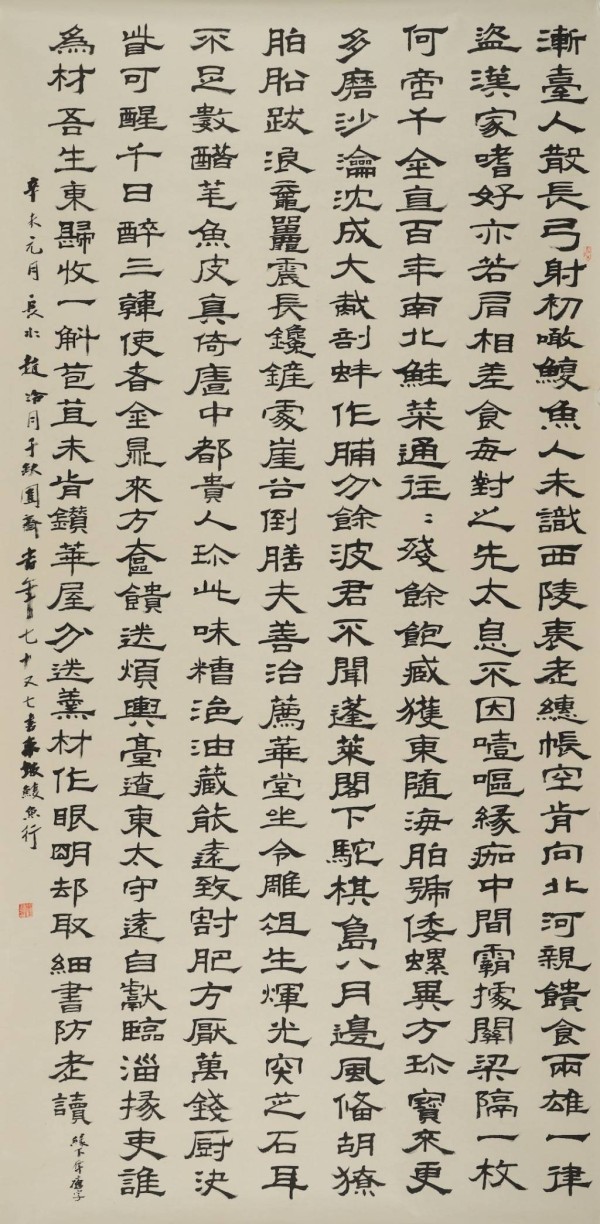 漸臺人散長弓射初噉鰒魚人未識西陵衰老繐帳空肯向北河親饋食兩雄一律
盜漢家嗜好亦若肩相差食每對之先太息不因噎嘔緣痂中間霸據關梁隔一枚
何啻千金直百年南北鮭菜通往〻殘餘飽臧獲東随海舶號倭螺異方珍寶來更
多磨沙瀹沈成大胾剖蚌作脯分餘波君不聞蓬萊閣下駝棋島八月邊風備胡獠
舶船跋浪黿鼉震長鑱鏟處崖谷倒膳夫善治薦華堂坐令雕俎生輝光肉芝石耳
不足數醋芼魚皮真倚廧中都貴人珍此味糟浥油藏能遠致割肥方厭萬錢厨決
眥可醒千日醉三韓使者金鼎來方奩饋送煩輿臺遼東太守遠自獻臨淄掾吏誰
為材吾生東歸收一斛苞苴未肯鑽華屋分送羹材作眼明却取細書防老讀
緣下奪瘡字
辛未元月長水趙冷月于缺圓齋時年七十又七書東坡鰒魚行